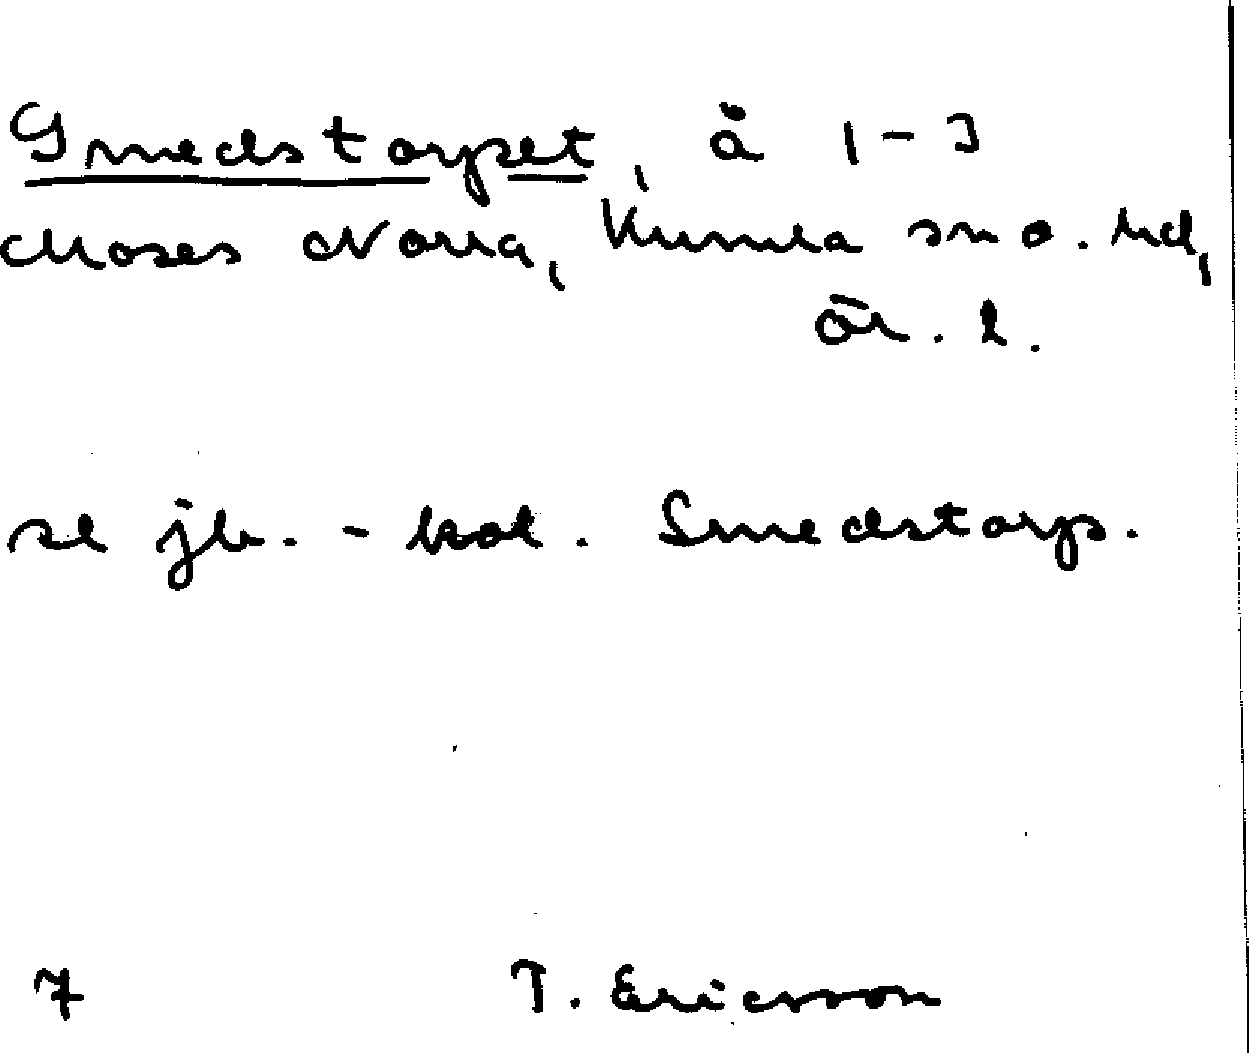 Smedstorpet, å 1-3
Mosås Norra, Kumla sn o. hd,
Ör. l.
se jb. - kok. Smedstorp.
7 T. Ericsson